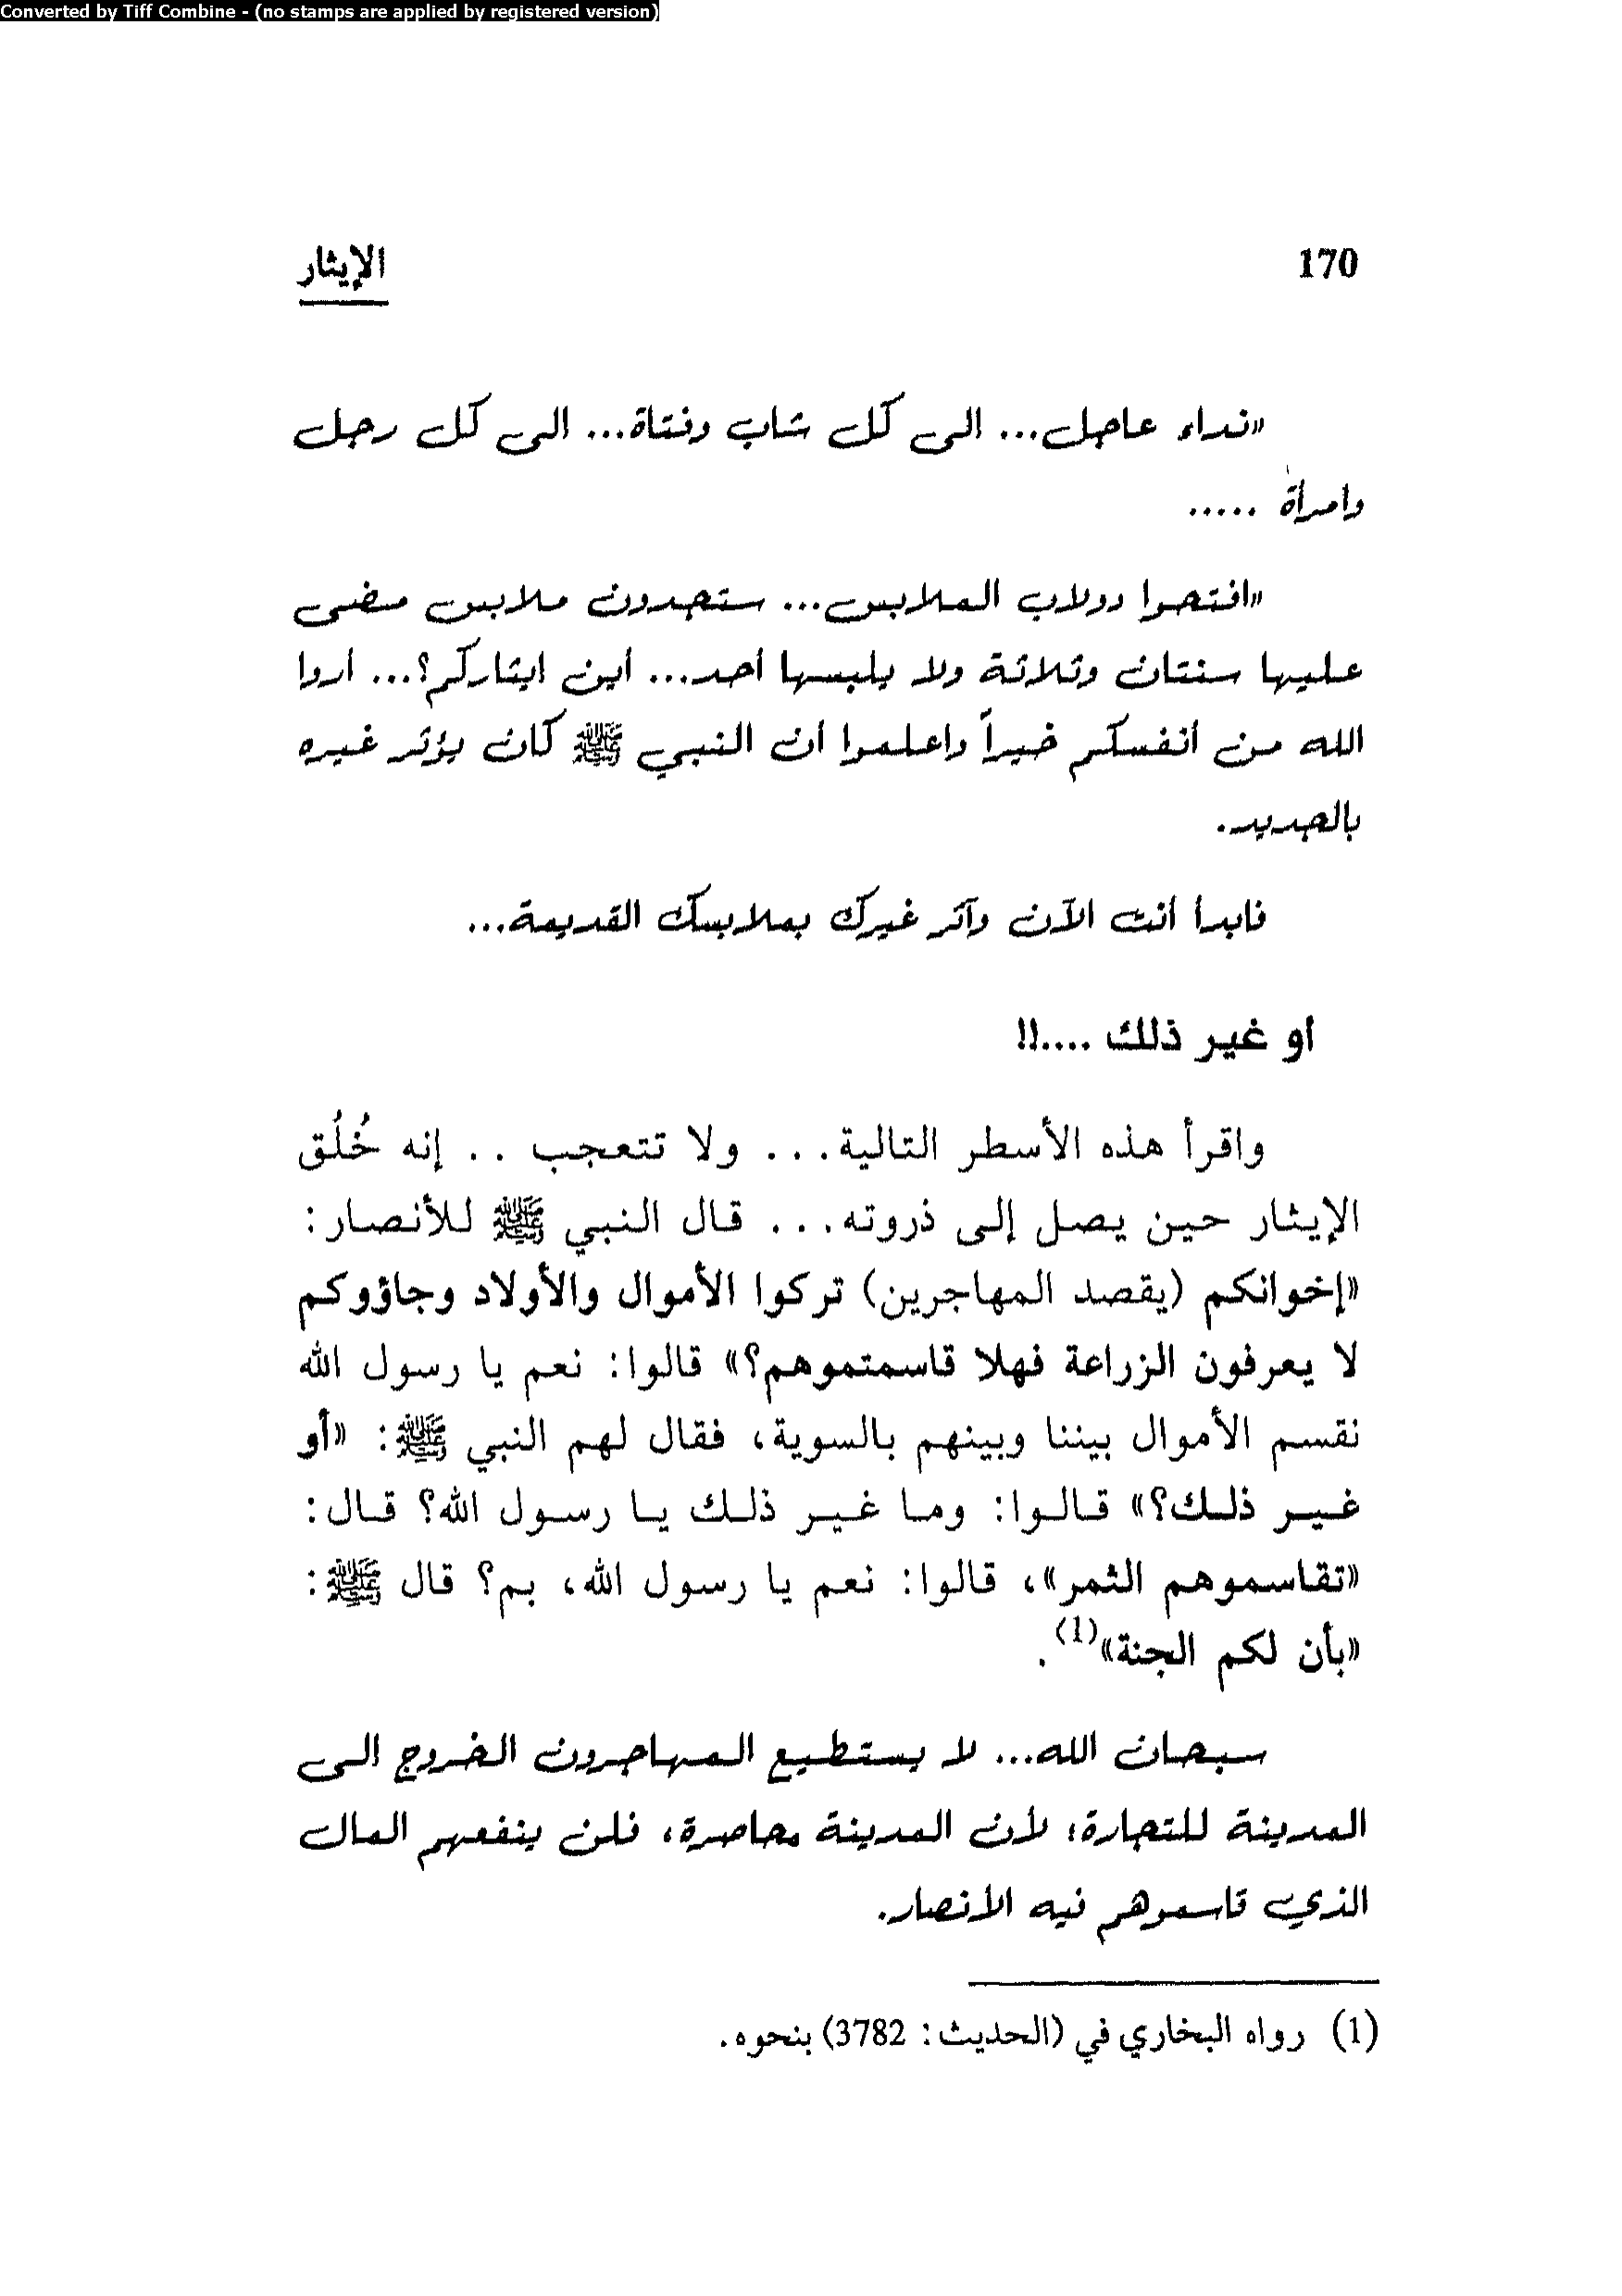 Converted by Tiff Combine - (no stamps are applied by registered version)
170 الإيثار
«نداء عاجل... الى كل شاب وفتاة... الى كل رجل
وامرأة .....
«افتحوا دولاب الملابس... ستجدون ملابس مضى
عليها سنتان وثلاثة ولا يلبسها أحد... أين ايثاركم؟... أروا
الله من أنفسكم خيراً واعلموا أن النبي ﷺ كان يؤثر غيره
بالجديد.
فابدأ أنت الآن وآثر غيرك بملابسك القديمة...
أو غير ذلك ....!!
واقرأ هذه الأسطر التالية... ولا تتعجب .. إنه خُلُق
الإيثار حين يصل إلى ذروته... قال النبي ﷺ للأنصار:
«إخوانكم (يقصد المهاجرين) تركوا الأموال والأولاد وجاؤوكم
لا يعرفون الزراعة فهلا قاسمتموهم؟» قالوا: نعم يا رسول الله
نقسم الأموال بيننا وبينهم بالسوية، فقال لهم النبي ﷺ: «أو
غير ذلك؟» قالوا: وما غير ذلك يا رسول الله؟ قال:
«تقاسموهم الثمر»، قالوا: نعم يا رسول الله، بم؟ قال ﷺ:
«بأن لكم الجنة»(1).
سبحان الله... لا يستطيع المهاجرون الخروج الى
المدينة للتجارة؛ لأن المدينة محاصرة، فلن ينفعهم المال
الذي قاسموهم فيه الأنصار.
(1) رواه البخاري في (الحديث: 3782) بنحوه.